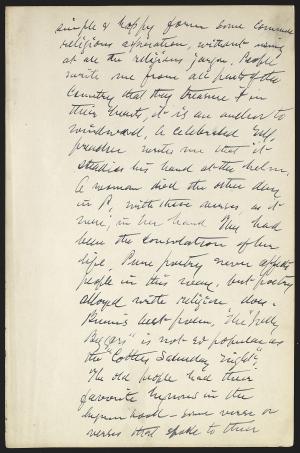 simple & happy form some common
religious aspiration, without using
at all the religious jargon. People
write me from all parts of the
country that they treasure it in
their hearts, it is an anchor to
windward. A celebrated Eng.
preacher writes me that it
steadies his hand at the helm.
A woman died the other day
in P, with these verses, as it
were, in her hand. They had
been the consolation of her
life. Pure poetry never affects
people in this way, but poetry
alloyed with religion does.
Burns's best poem, "The Jolly
Beggars" is not so popular as
the "Cotters Saturday night".
The old people had their
favorite hymns in the
hymn book - some verse or
verses that spoke to their